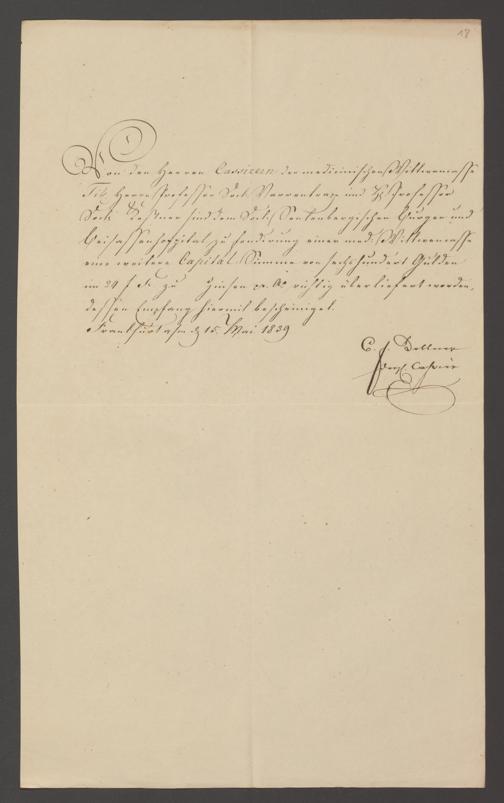 18
Von den Herren Cassieren der medicinischen Wittwencasse
Tit: Herrn Professor Doct. Varrentrapp und H. Professor
Doct. Kestner sind dem Doct. Senkenbergischen Bürger und
Beisassenhospital zu Fundirung einer med. Wittwencasse
eine weitere Capital Summe von sechshundert Gulden
im 24 f. F. zu Zinsen pr. Ao richtig überliefert worden,
dessen Empfang hiermit bescheiniget.
Frankfurt a/m d. 15. Mai 1839
C. F.